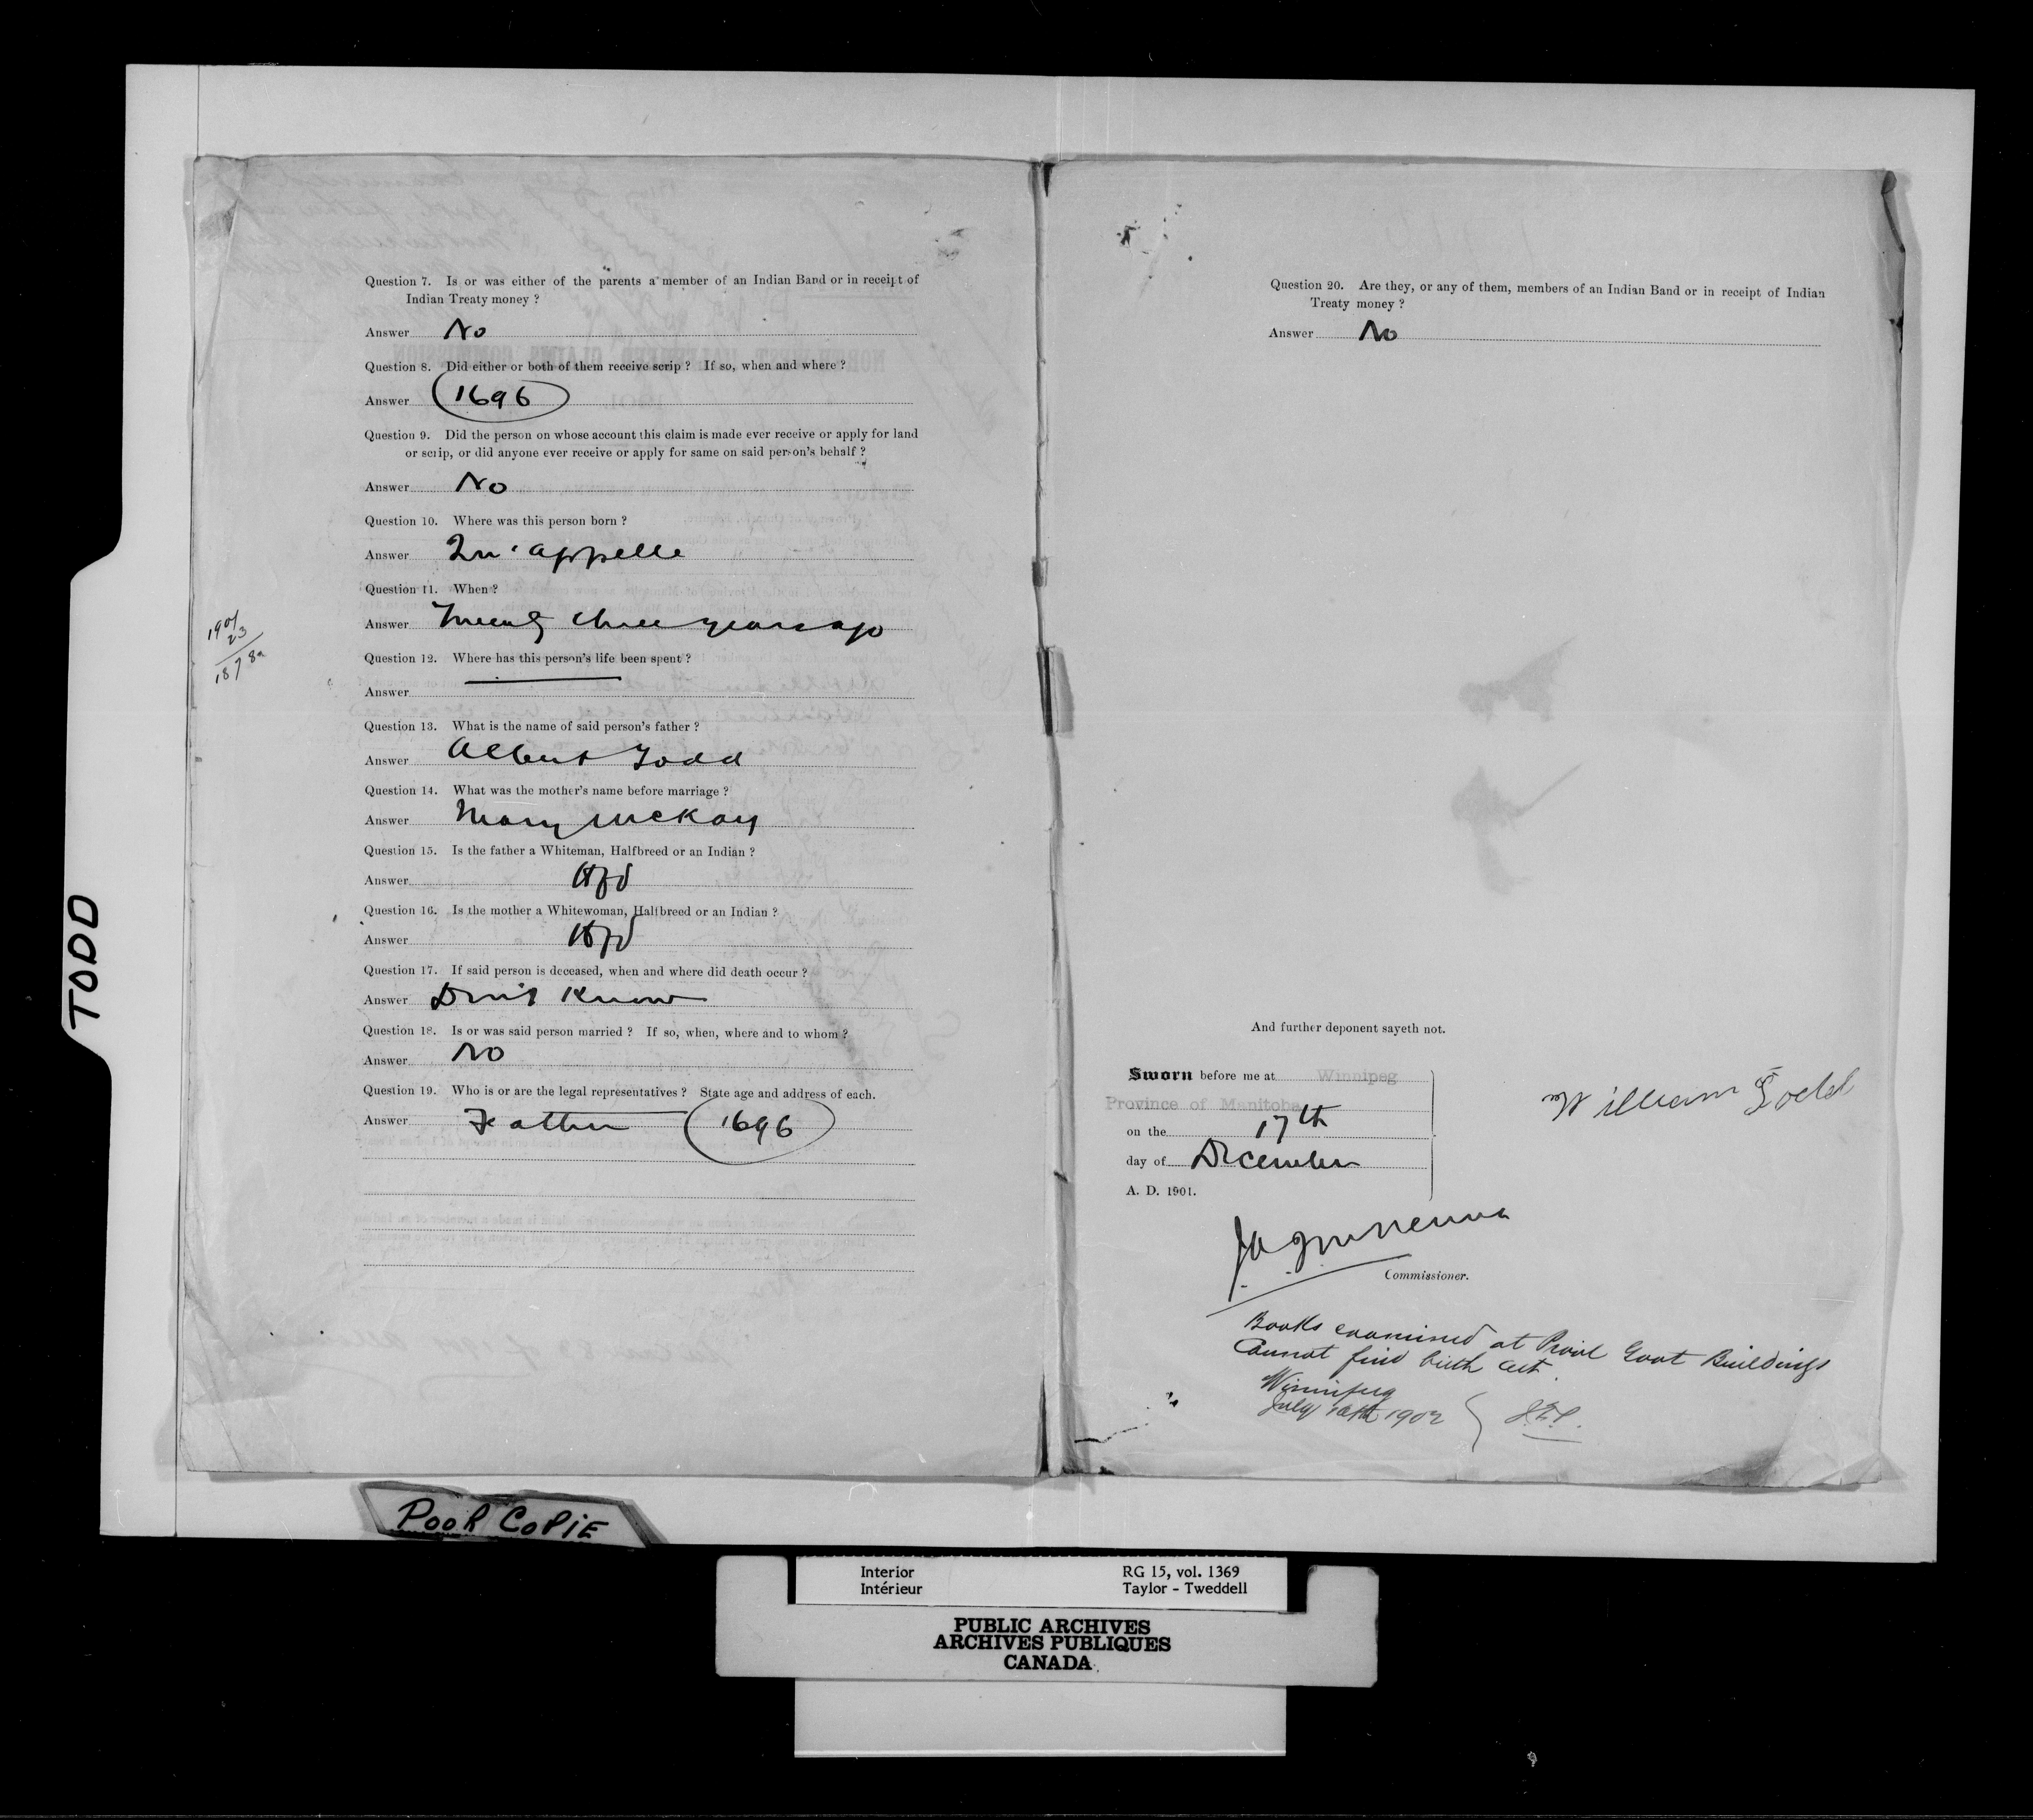 Question 7. Is or was either of the parents a member of an Indian Band or in receipt of
Indian Treaty money ?
Answer No
Question 8. Did either or both of them receive scrip ? If so, when and where ?
Answer 1696
Question 9. Did the person on whose account this claim is made ever receive or apply for land
or scrip, or did anyone ever receive or apply for same on said person's behalf ?
Answer No
Question 10. Where was this person born ?
Answer Qu'appelle
Question 11. When ?
Answer Twenty three years ago
1901
23
1878
Question 12. Where has this person's life been spent ?
Answer
Question 13. What is the name of said person's father ?
Answer Albert Todd
Question 14. What was the mother's name before marriage ?
Answer Mary McKay
Question 15. Is the father a Whiteman, Halfbreed or an Indian ?
Answer Hfd
Question 16. Is the mother a Whitewoman, Halfbreed or an Indian ?
Answer Hfd
Question 17. If said person is deceased, when and where did death occur ?
Answer Don't Know
Question 18. Is or was said person married ? If so, when, where and to whom ?
Answer No
Question 19. Who is or are the legal representatives ? State age and address of each.
Answer Father 1696
Question 20. Are they, or any of them, members of an Indian Band or in receipt of Indian
Treaty money ?
Answer No
And further deponent sayeth not.
Sworn before me at Winnipeg
Province of Manitoba
on the 17th
day of December
A. D. 1901.
William Todd
Commissioner.
Books examined at Provl Govt Buildings
Cannot find birth cert.
Winnipeg
July 1902
TODD
POOR COPIE
Interior
Intérieur
RG 15, vol. 1369
Taylor - Tweddell
PUBLIC ARCHIVES
ARCHIVES PUBLIQUES
CANADA